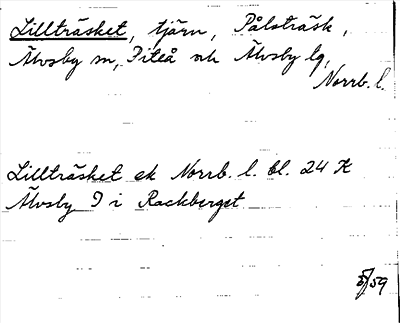 Lillträsket, tjärn, Pålsträsk,
Älvsby sn, Piteå och Älvsby lg,
Norrb. l.
Lillträsket ek Norrb. l. bl. 24 K
Älvsby I i Rackberget
5/59